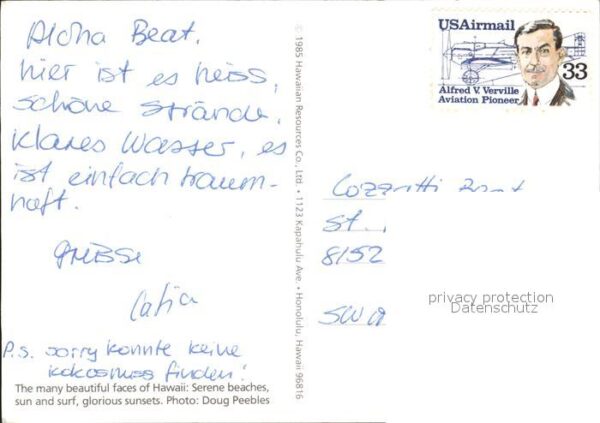 Aloha Beat,
hier ist es heiss,
schöne Strände,
klares Wasser, es
ist einfach traum-
haft.
Grüsse
Catia
P.S. sorry konnte keine
kokosnuss finden!
The many beautiful faces of Hawaii: Serene beaches,
sun and surf, glorious sunsets. Photo: Doug Peebles
© 1985 Hawaiian Resources Co., Ltd. • 1123 Kapahulu Ave. • Honolulu, Hawaii 96816
USAirmail
33
Alfred V. Verville
Aviation Pioneer
St.
8152
privacy protection
Datenschutz